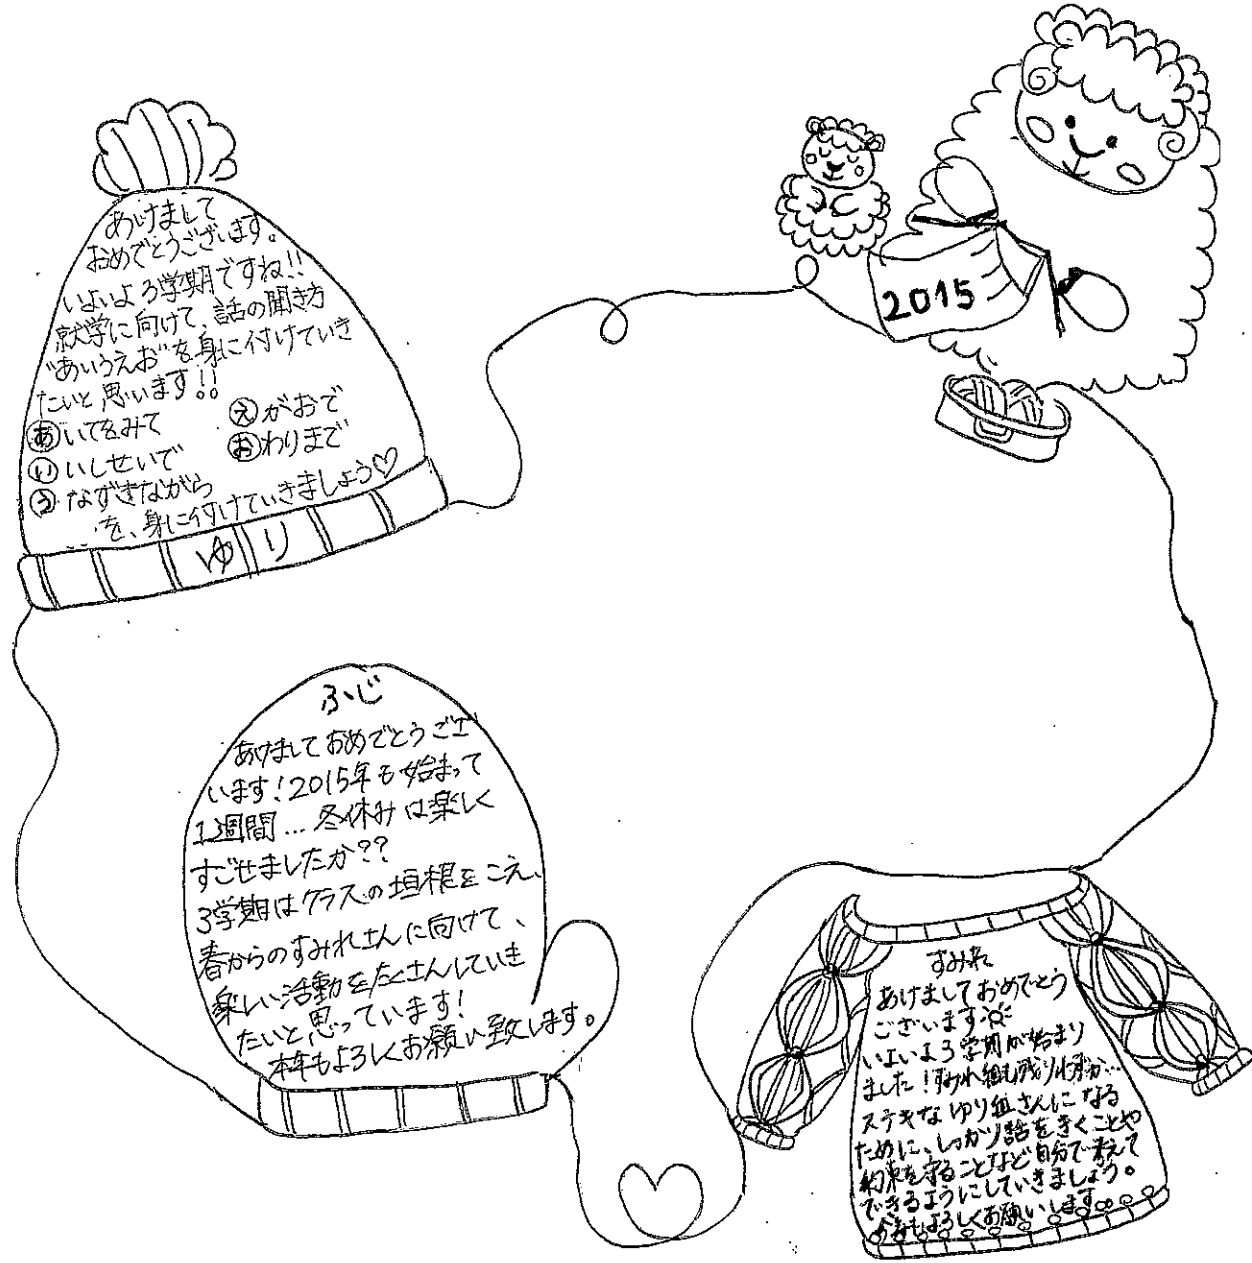 あけまして
おめでとうございます。
いよいよ3学期ですね!!
就学に向けて、話の聞き方
"あいうえお"を身に付けていき
たいと思います!!
あいてをみて
いいしせいで
うなずきながら
えがおで
おわりまで
…を、身に付けていきましょう♡
ゆり
2015
ふじ
あけましておめでとうござ
います!2015年も始まって
1週間…冬休みは楽しく
すごせましたか??
3学期はクラスの垣根をこえ、
春からのすみれさんに向けて、
楽しい活動をたくさんしていき
たいと思っています!
本年もよろしくお願い致します。
すみれ
あけましておめでとう
ございます
いよいよ3学期が始まり
ました!すみれ組も残りわずか…
ステキなゆり組さんになる
ために、しっかり話をきくことや
約束を守ることなど自分で考えて
できるようにしていきましょう。
今年もよろしくお願いします